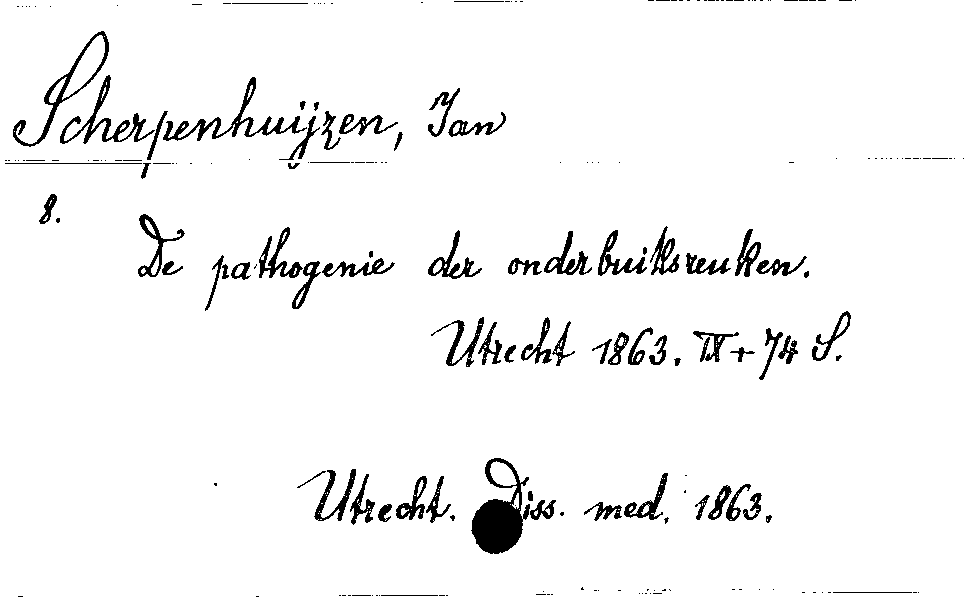 Scherpenhuijzen, Jan
8.
De pathogenie der onderbuiksreuken.
Utrecht 1863. IX + 74 S.
Utrecht. Diss. med. 1863.